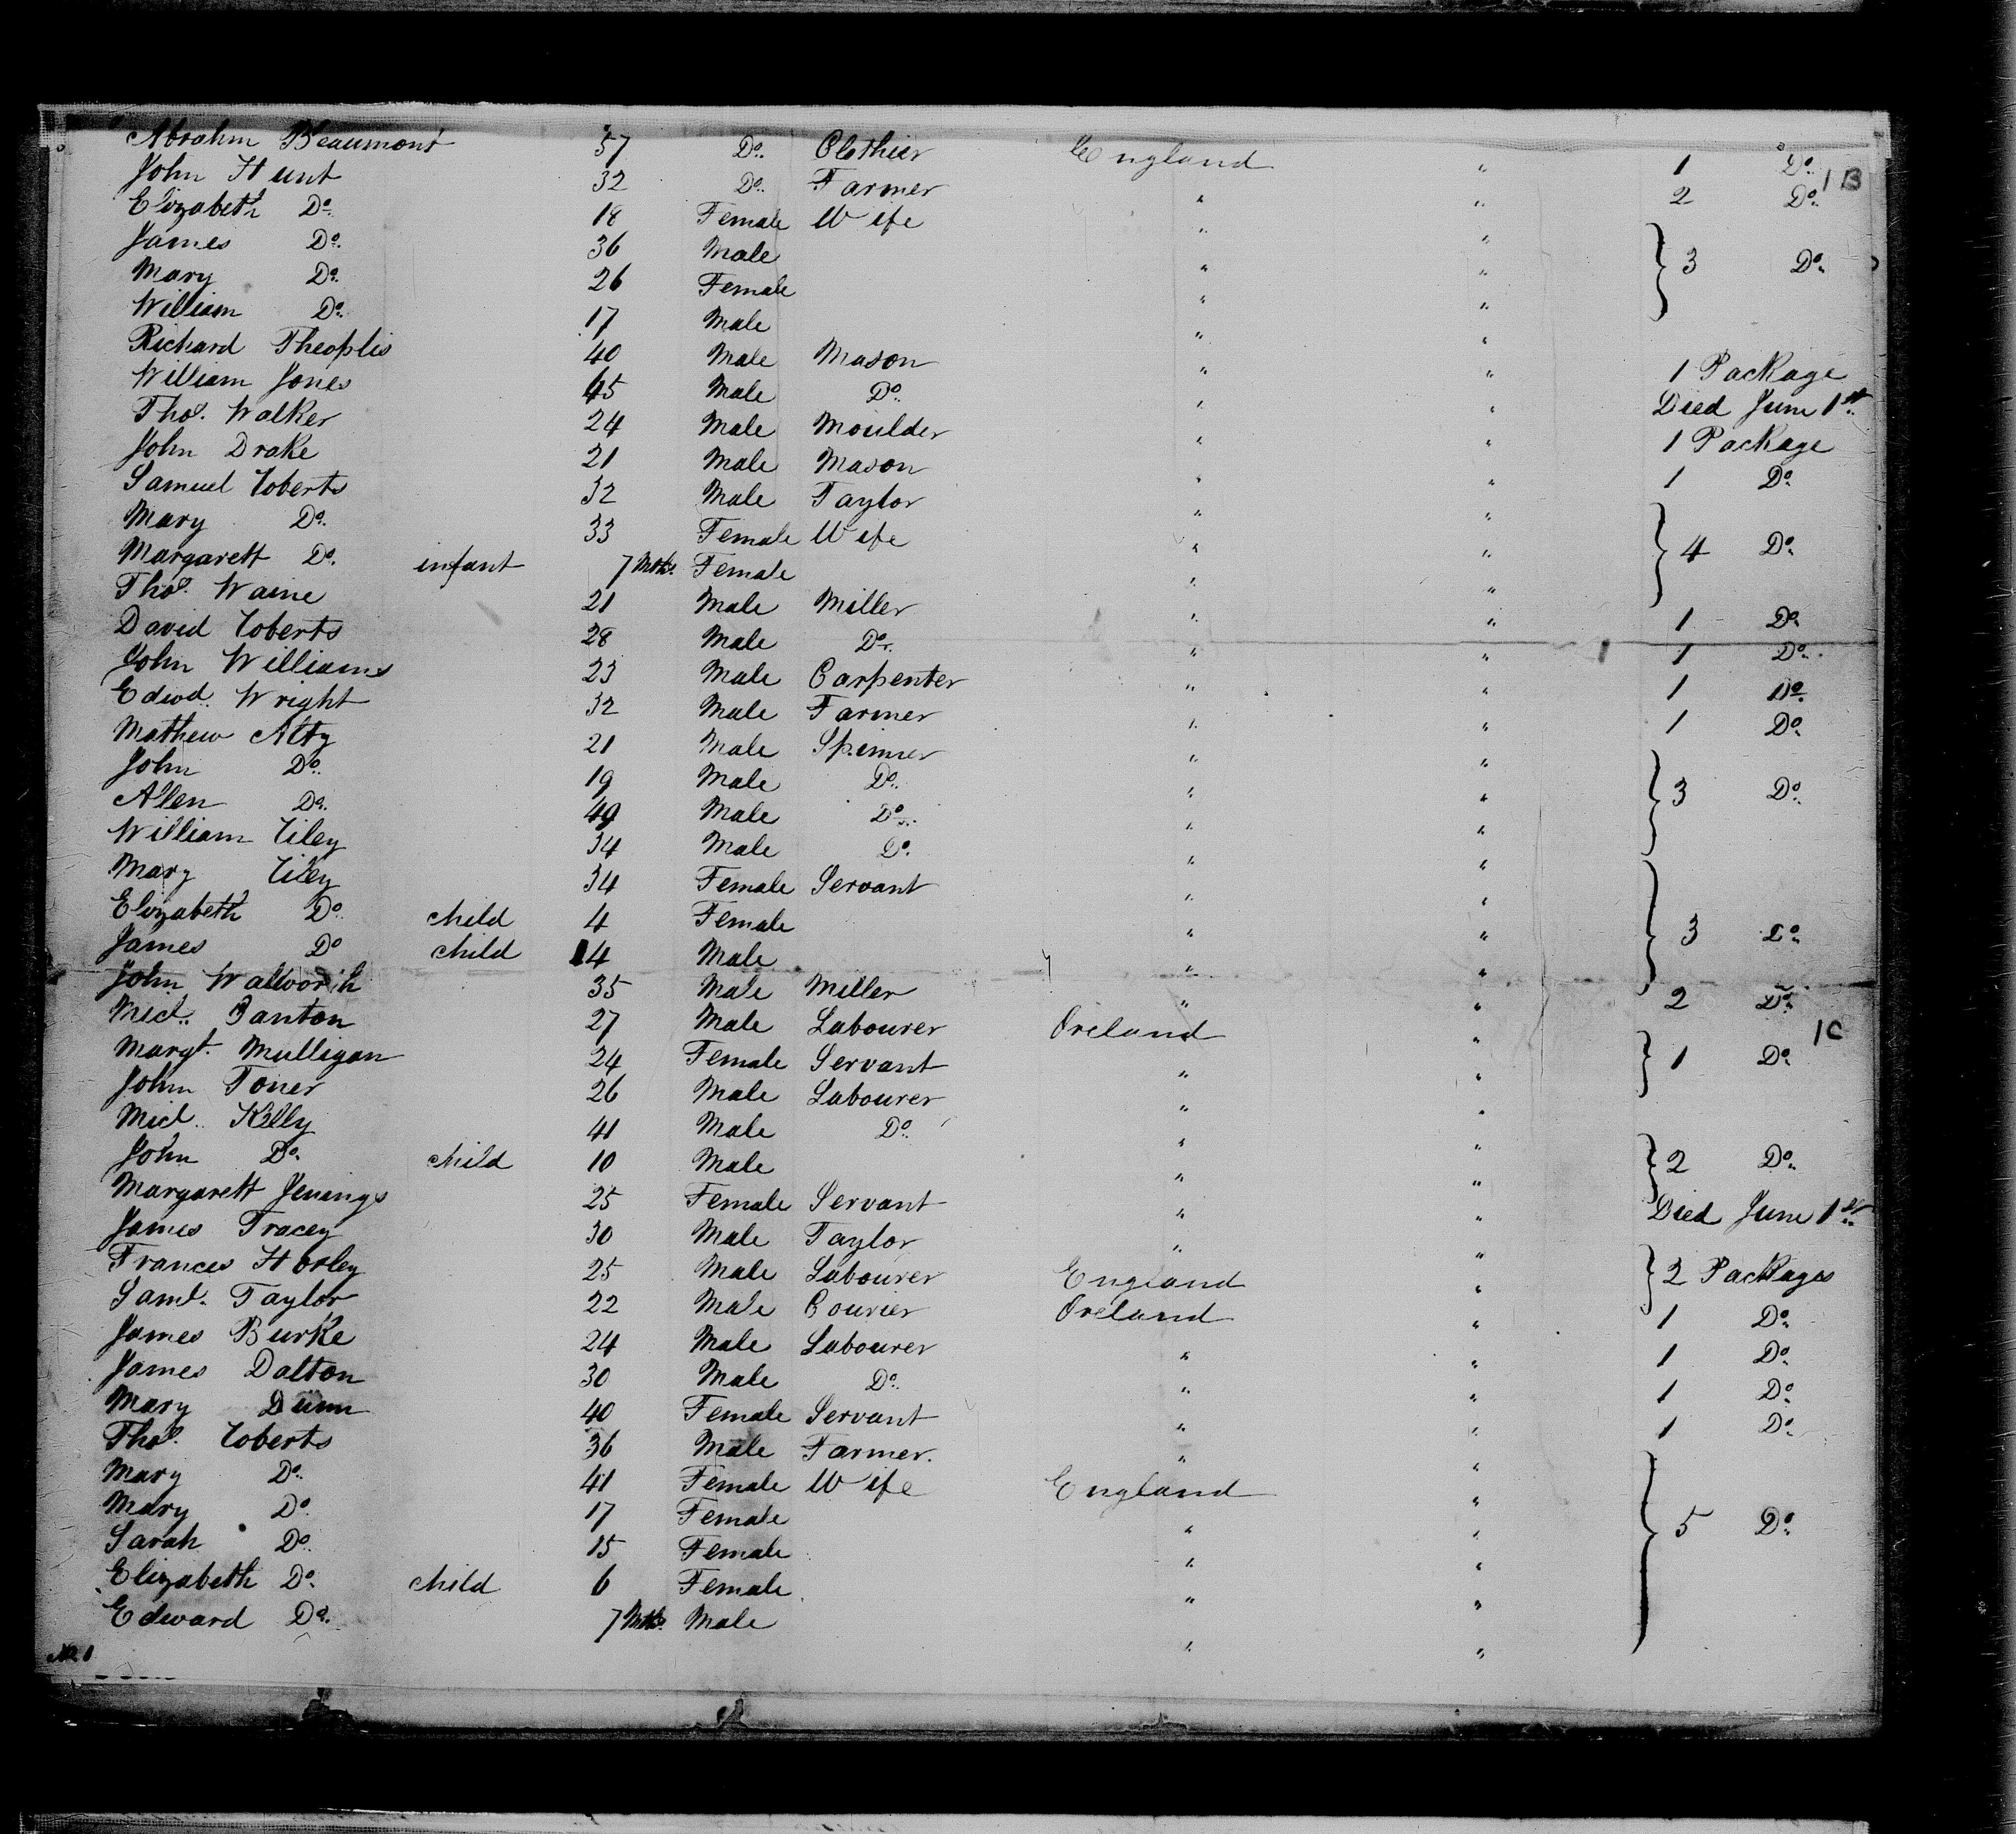 Abrahm Beaumont 57 Do. Clothier England " 1 Do. 1B
John Hunt 32 Do. Farmer " " 2 Do.
Elizabeth Do. 18 Female Wife " "
James Do. 36 Male " " } 3 Do.
Mary Do. 26 Female " "
William Do. 17 Male " "
Richard Theoplis 40 Male Mason " " 1 Package
William Jones 45 Male Do. " " Died June 1st
Thos. Walker 24 Male Moulder " " 1 Package
John Drake 21 Male Mason " " 1 Do.
Samuel Roberts 32 Male Taylor " "
Mary Do. 33 Female Wife " " } 4 Do.
Margarett Do. infant 7 Mths. Female " "
Thos. Waine 21 Male Miller " " 1 Do.
David Roberts 28 Male Do. " " 1 Do.
John Williams 23 Male Carpenter " " 1 Do.
Edwd. Wright 32 Male Farmer " " 1 Do.
Mathew Alty 21 Male Spinner " "
John Do. 19 Male Do. " " } 3 Do.
Allen Do. 49 Male Do. " "
William Riley 34 Male Do. " "
Mary Riley 34 Female Servant " "
Elizabeth Do. child 4 Female " " } 3 Do.
James Do child 4 Male " "
John Walworth 35 Male Miller " " 2 Do.
Micl. Banton 27 Male Labourer Ireland " 1C
Margt. Mulligan 24 Female Servant " " } 1 Do.
John Toner 26 Male Labourer " "
Micl. Kelly 41 Male Do. " "
John Do. child 10 Male " " } 2 Do.
Margarett Jenings 25 Female Servant " " Died June 1st
James Tracey 30 Male Taylor " "
Frances Horley 25 Male Labourer England " } 2 Packages
Saml. Taylor 22 Male Courier Ireland " 1 Do.
James Burke 24 Male Labourer " " 1 Do.
James Dalton 30 Male Do. " " 1 Do.
Mary Dunn 40 Female Servant " " 1 Do.
Thos. Roberts 36 Male Farmer. " "
Mary Do. 41 Female Wife England "
Mary Do. 17 Female " " } 5 Do.
Sarah Do. 15 Female " "
Elizabeth Do. child 6 Female " "
Edward Do. 7 Mths. Male " "